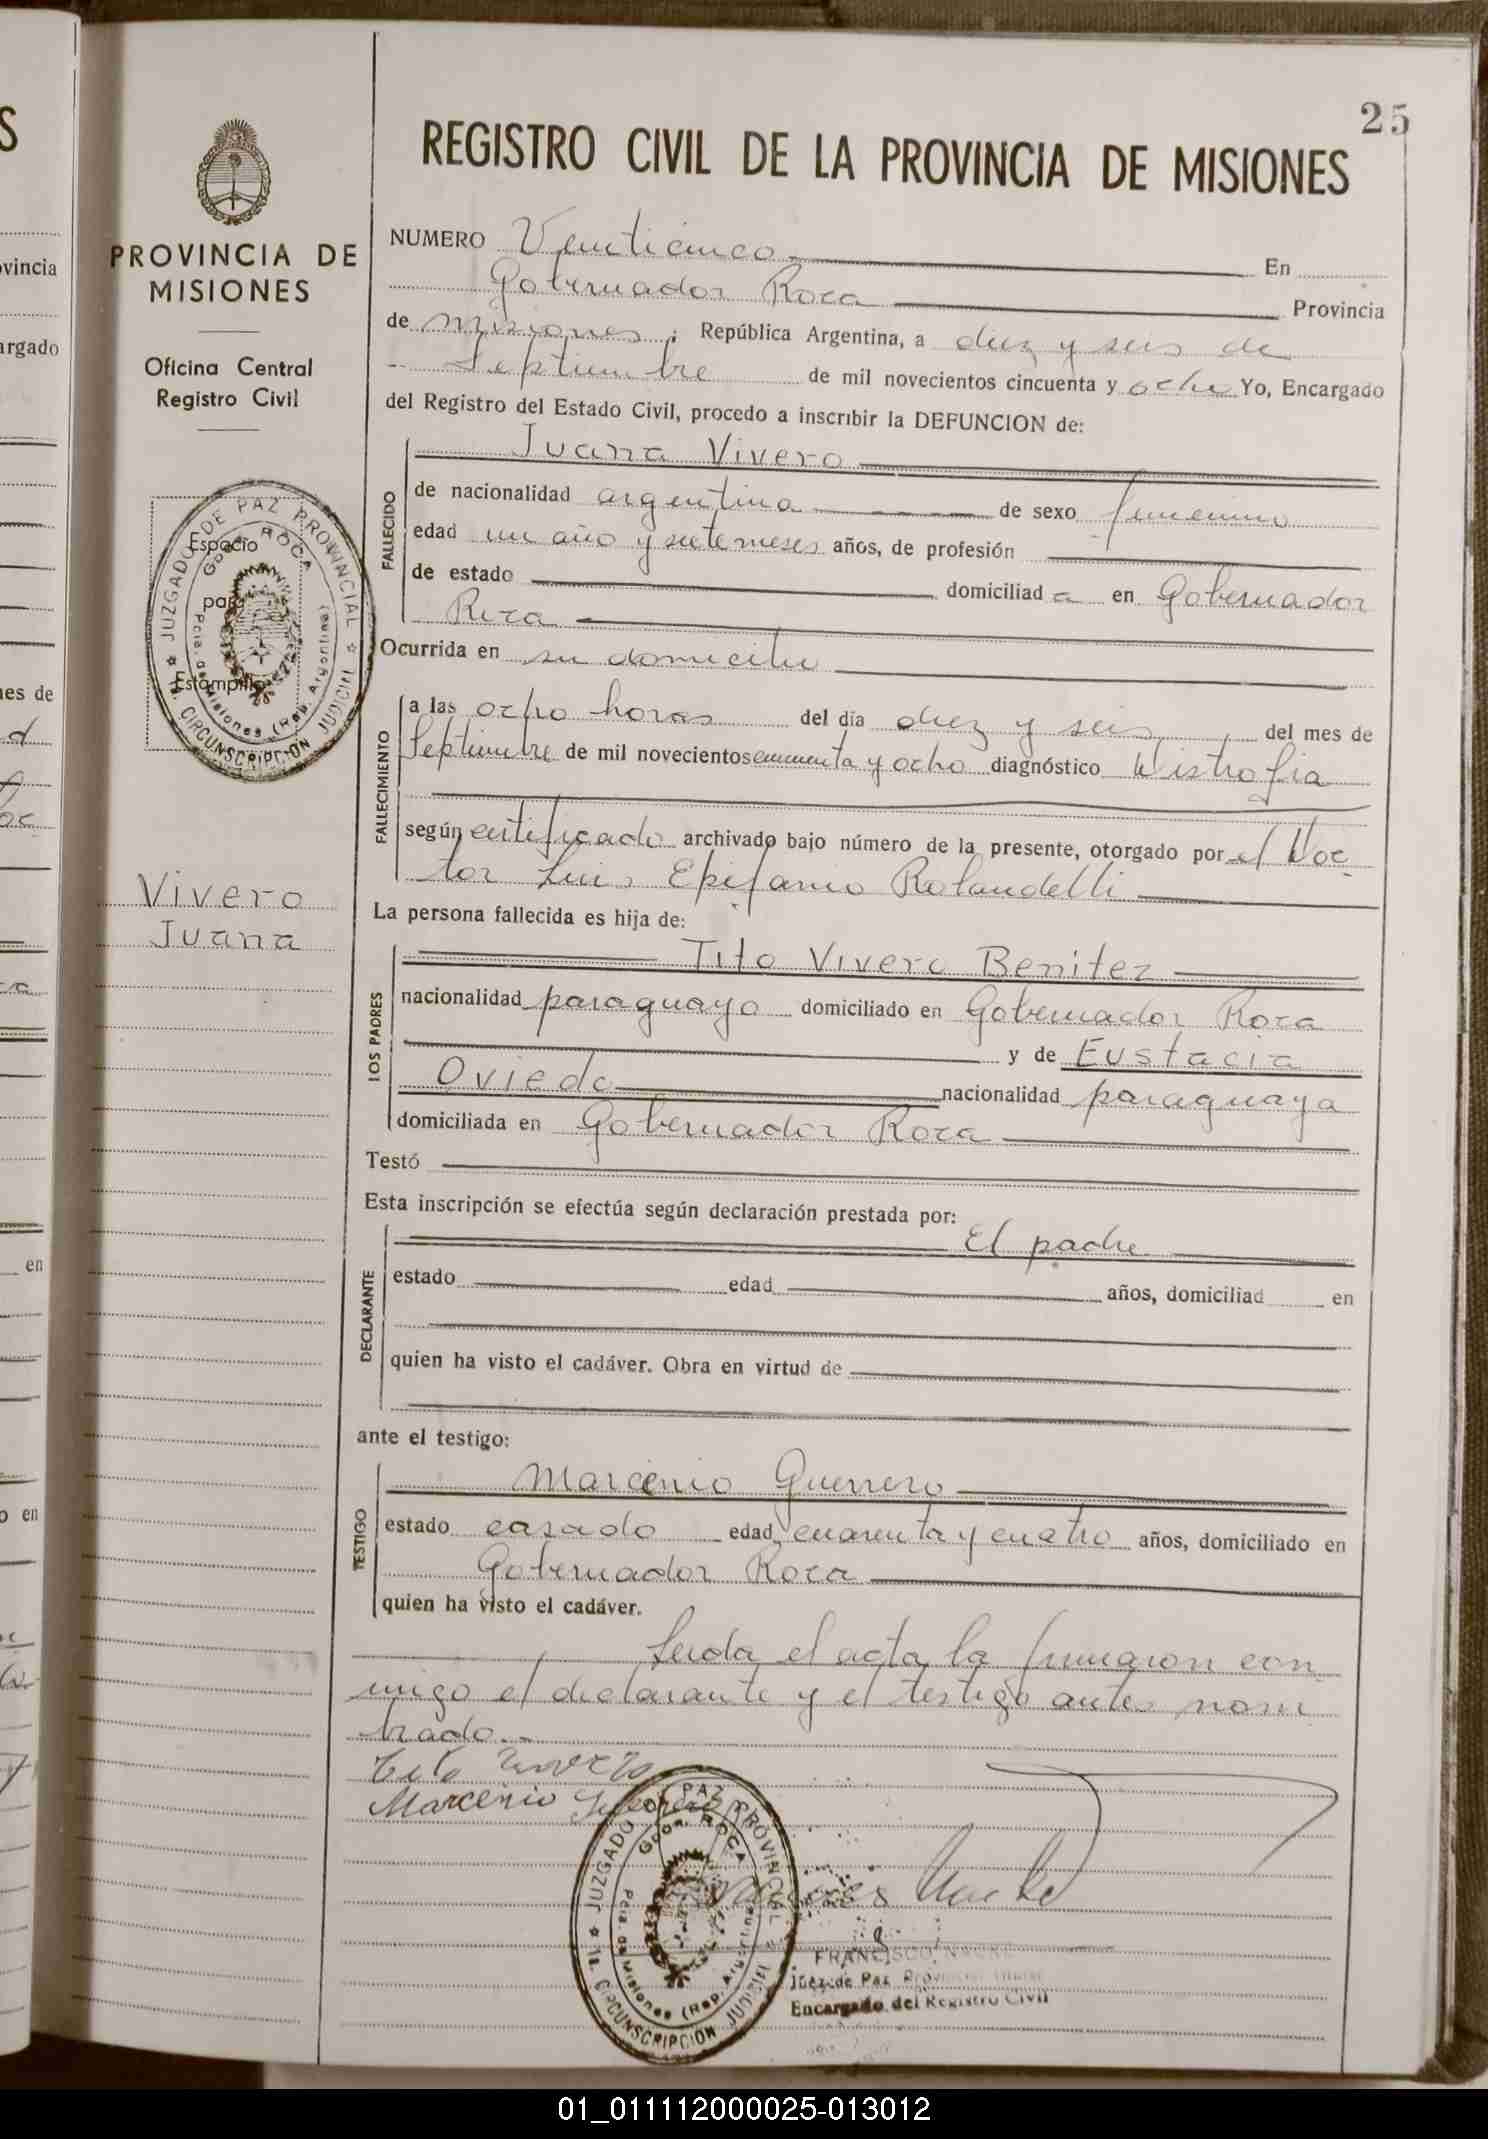 25
REGISTRO CIVIL DE LA PROVINCIA DE MISIONES
PROVINCIA DE
MISIONES
Oficina Central
Registro Civil
Espacio
para
Estampilla
JUZGADO DE PAZ PROVINCIAL
Gdor. ROCA
Pcia. de Misiones (Rep. Argentina)
1a. CIRCUNSCRIPCIÓN JUDICIAL
Vivero
Juana
NUMERO Veinticinco En
Gobernador Roca Provincia
de Misiones ; República Argentina, a diez y seis de
Septiembre de mil novecientos cincuenta y ocho Yo, Encargado
del Registro del Estado Civil, procedo a inscribir la DEFUNCION de:
FALLECIDO
Juana Vivero
de nacionalidad argentina de sexo femenino
edad un año y siete meses años, de profesión
de estado domiciliad a en Gobernador
Roca
Ocurrida en su domicilio
FALLECIMIENTO
a las ocho horas del día diez y seis del mes de
Septiembre de mil novecientos cincuenta y ocho diagnóstico Distrofia
según certificado archivado bajo número de la presente, otorgado por el Doc
tor Luis Epifanio Rolandelli
La persona fallecida es hija de:
LOS PADRES
Tito Vivero Benitez
nacionalidad paraguayo domiciliado en Gobernador Roca
y de Eustacia
Oviedo nacionalidad paraguaya
domiciliada en Gobernador Roca
Testó
Esta inscripción se efectúa según declaración prestada por:
DECLARANTE
El padre
estado edad años, domiciliad en
quien ha visto el cadáver. Obra en virtud de
ante el testigo:
TESTIGO
Marcenio Guerrero
estado casado edad cuarenta y cuatro años, domiciliado en
Gobernador Roca
quien ha visto el cadáver.
Leida el acta la firmaron con
migo el declarante y el testigo antes nom
brado.-
Tito Vivero
Marcenio Guerrero
JUZGADO DE PAZ PROVINCIAL
Gdor. ROCA
Pcia. de Misiones (Rep. Argentina)
1a. CIRCUNSCRIPCIÓN JUDICIAL
FRANCISCO
Juez de Paz Provincial Titular
Encargado del Registro Civil
01_011112000025-013012